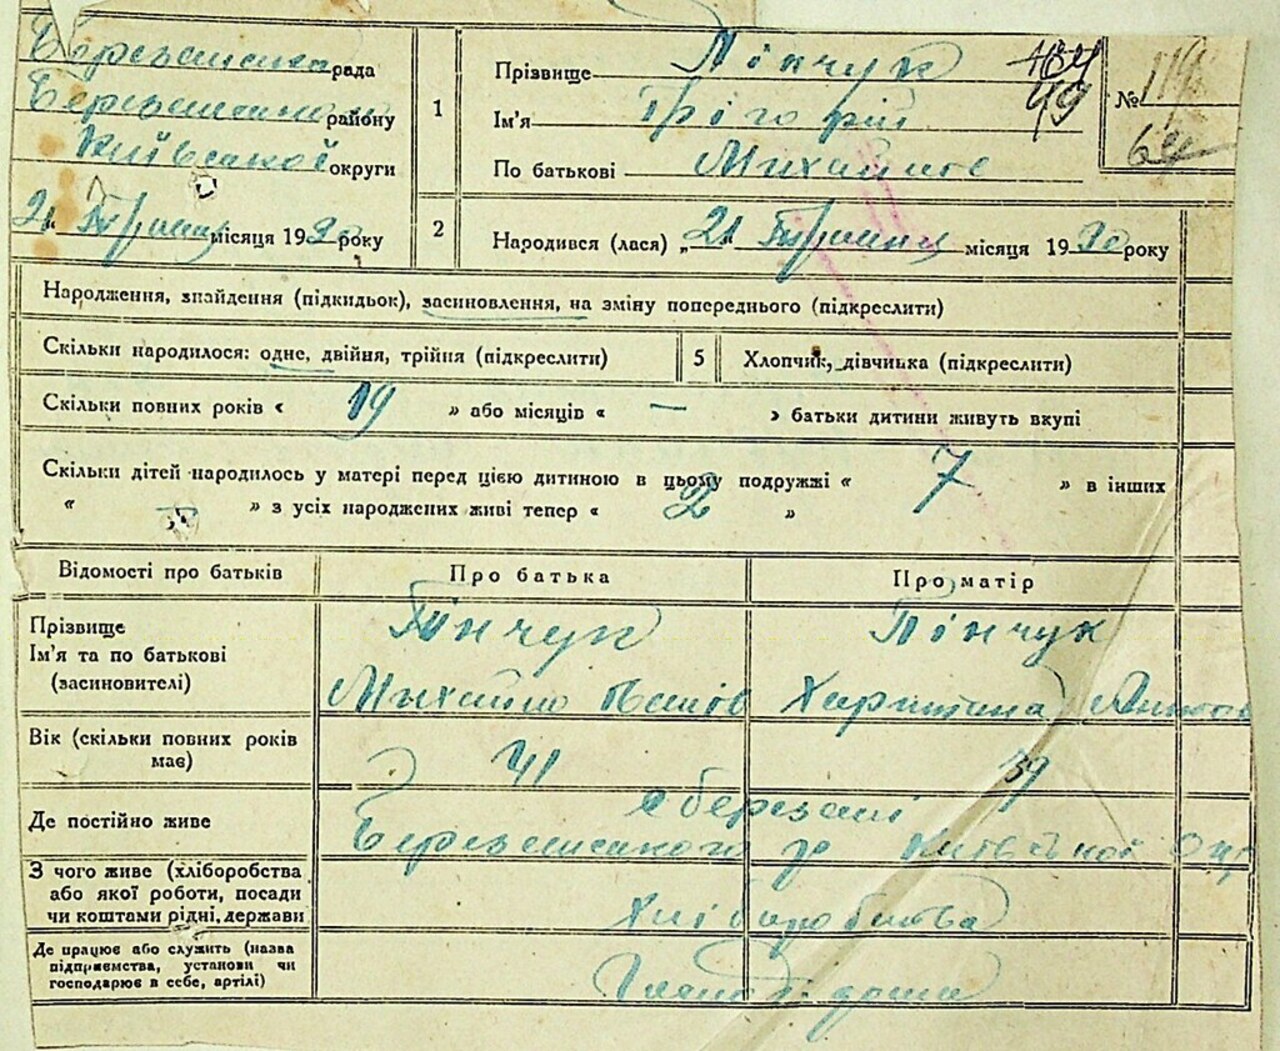 Березанська рада
Березанського району
Київської округи
21 Травня місяця 1930 року
1
Прізвище Пінчук
Ім'я Грігорій
По батькові Михайлов
184
49
№ 119
64
2
Народився (лася) „21" Травня місяця 1930 року
Народження, знайдення (підкидьок), засиновлення, на зміну попереднього (підкреслити)
Скільки народилося: одне, двійня, трійня (підкреслити)
5
Хлопчик, дівчинка (підкреслити)
Скільки повних років « 19 » або місяців « — » батьки дитини живуть вкупі
Скільки дітей народилось у матері перед цією дитиною в цьому подружжі « 7 » в інших
« » з усіх народжених живі тепер « 2 »
Відомості про батьків
Про батька
Про матір
Прізвище
Ім'я та по батькові
(засиновителі)
Пінчук
Михайло Іванов
Пінчук
Харитина Антонов
Вік (скільки повних років
має)
41
39
Де постійно живе
с Березані
Березанського р Київської Окр
З чого живе (хліборобства
або якої роботи, посади
чи коштами рідні, держави
Хліборобства
Де працює або служить (назва
підприємства, установи чи
господарює в себе, артілі)
дома